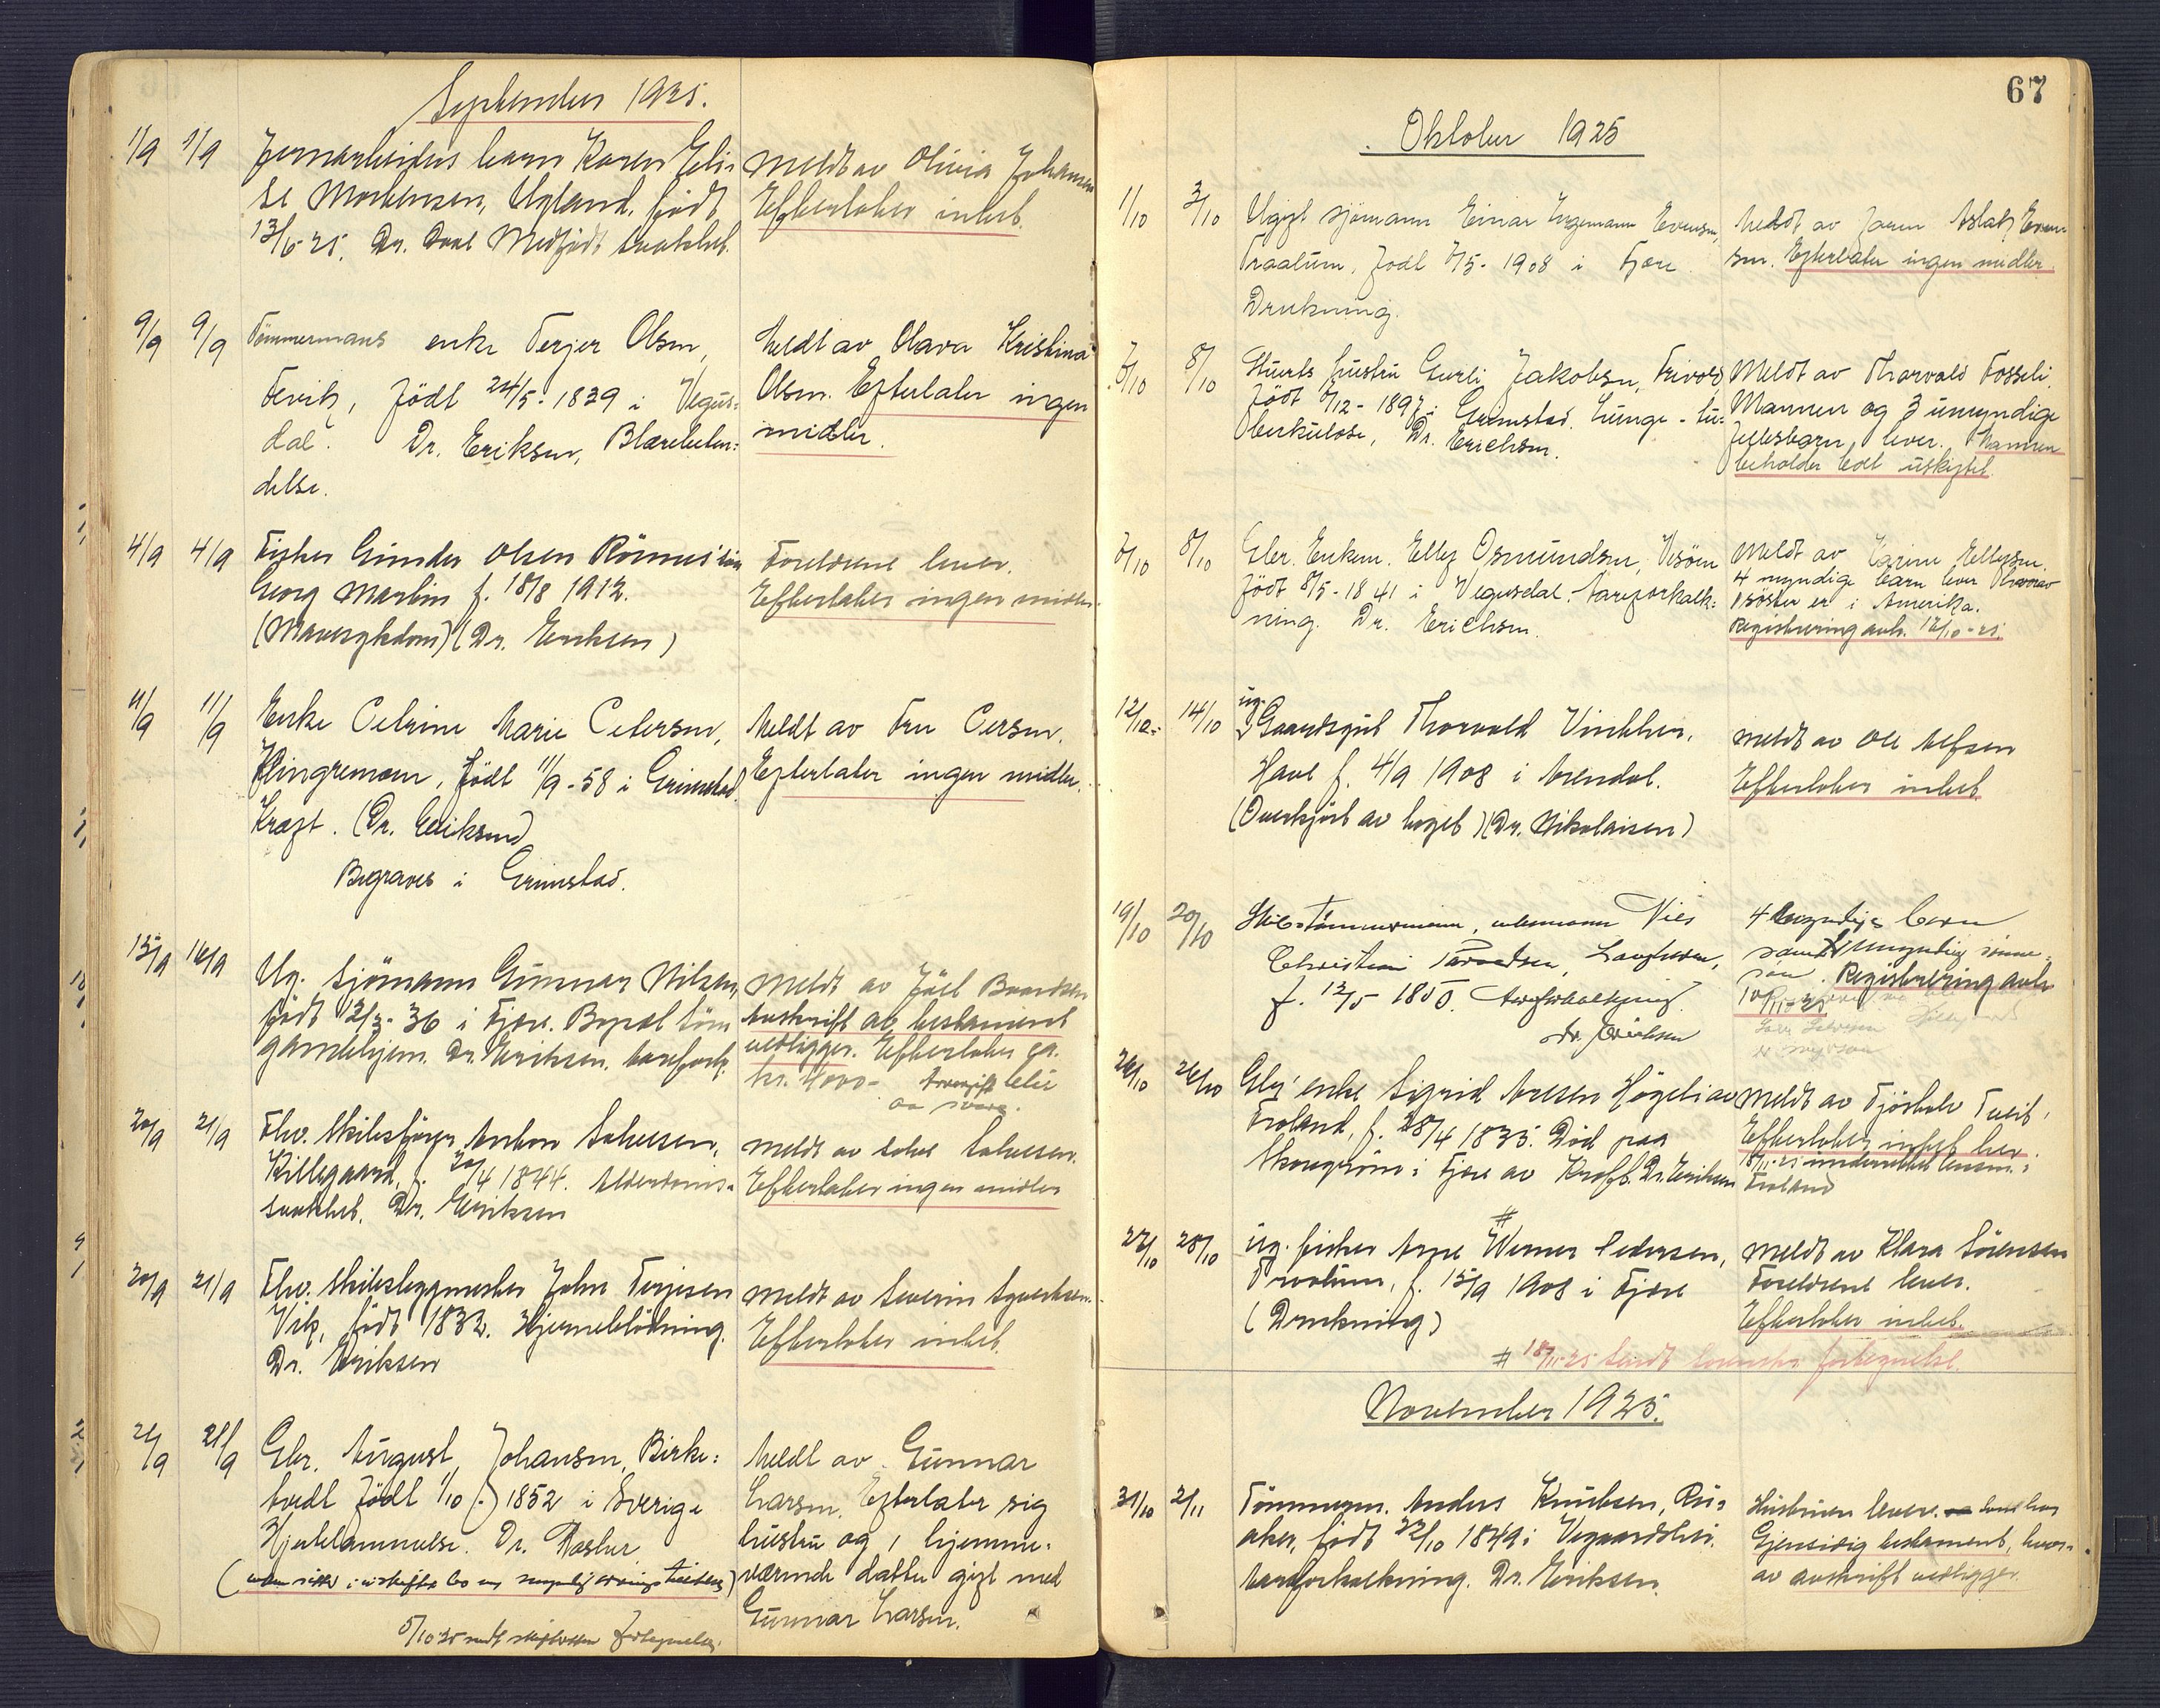 September 1925.
1/9 1/9 Jernarbeiders barn Karen Eli-
se Mortensen, Ugland, født
13/6-25. Dr. Dvel Medfødt svakhet.
meldt av Olivia Johansen
Efterlater intet.
9/9 9/9 Tømmermans enke Terjer Olsen,
Fevik, født 24/5-1839 i Vegus-
dal. Dr. Eriksen, Blærebeten-
delse.
Meldt av Olava Kristina
Olsen. Efterlater ingen
midler.
4/9 4/9 Fisker Gunder Olsen Rönnes' søn
Georg Martin f. 18/8 1912.
(Mavesykdom) (Dr. Eriksen)
Foreldrene lever.
Efterlater ingen midler.
11/9 11/9 Enke Petrine Marie Petersen,
Klingremoen, født 11/9-58 i Grimstad.
Kræft. (Dr. Eriksen)
Begraves i Grimstad.
Meldt av Fru Persen.
Efterlater ingen midler.
15/9 16/9 Ug. Sjömann Gunnar Nilsen,
født 12/3-36 i Fjære. Bopæl Søm
gamlehjem. Dr. Eriksen. Aareforkj.
meldt av Joel Baardsen
Avskrift av testament
vedligger. Efterlater ca.
kr. 4000-
20/9 21/9 Fhv. Skibsfører Anton Salvesen,
Killegaard, f. 20/4 1844. Alderdoms-
svakhet. Dr. Eriksen
meldt av Salve Salvesen.
Efterlater ingen midler
20/9 21/9 Fhv. Skibsbyggmester John Terjesen
Vik, født 1832. Hjerneblödning.
Dr. Eriksen
meldt av Severin Syvertsen.
Efterlater intet.
21/9 Gbr. August Johansen, Birke-
tvedt født 1/10 1852 i Sverige
Hjertelammelse. Dr. Rosher
Meldt av Gunnar
Larsen. Efterlater sig
hustru og 1 hjemme-
værende datter gift med
Gunnar Larsen.
5/10-25 sendt skifteretten fortegnelse.
67
Oktober 1925
1/10 3/10 Ugift sjömann Einar Ingemann Evensen,
Traalum, født 1/5-1908 i Fjære
Drukning.
Meldt av faren Aslak Even-
sen. Efterlater ingen midler.
8/10 Stuerts hustru Gurli Jakobsen, Frivold
født 6/12-1897 i Grimstad. Lunge-tu-
berkulose, Dr. Erichsen.
Meldt av Tharvald Fosseli.
Mannen og 3 umyndige
fellesbarn lever. Mannen
beholder boet uskiftet.
6/10 8/10 Gbr. Enkem. Ellef Osmundsen, Vesøen
født 8/5-1841 i Vegusdal. Aareforkalk-
ning. Dr. Erichsen.
Meldt av Karine Ellefsen.
4 myndige barn lever hvorav
1 søster er i Amerika.
Registrering avh. 12/10-25.
12/10 14/10 ug.
Gaardsgut Thorvald Vinkler,
Have f. 4/9 1908 i Arendal.
(Overkjört av toget) (Dr. Nikolaisen)
meldt av Ole Alfsen
Efterlater intet
19/10 20/10 Skibstømmermann, enkemann Nils
Christian Tarvedsen, Langhom,
f. 12/5 1850. Aareforkalkning.
Dr. Erichsen
4 myndige barn
samt 1 umyndig sønne-
søn. Registrering avh
26/10 26/10 Gbr' enke Sigrid Aresen Högeli av
Froland, f. 28/4 1835. Död paa
Skougröm i Fjære av Kræft. Dr. Eriksen
meldt av Tjöstolv Tveit,
Efterlater intet her.
18/11-25 underrettet lensm. i
Froland
27/10 28/10 ug. fisker Arne Werner Pedersen, #
Traalum, f. 15/9 1908 i Fjære
(Drukning)
meldt av Klara Sörensen
Foreldrene lever.
Efterlater intet.
# 18/11-25 Sendt Sorenskr. fortegnelse.
November 1925.
31/10 2/11 Tömmerm. Anders Knutsen, Ru-
aker, født 22/10 1849 i Vegaardshei.
Aareforkalkning. Dr. Eriksen.
Hustruen lever.
Gjensidig testament, hvor-
av avskrift vedligger.